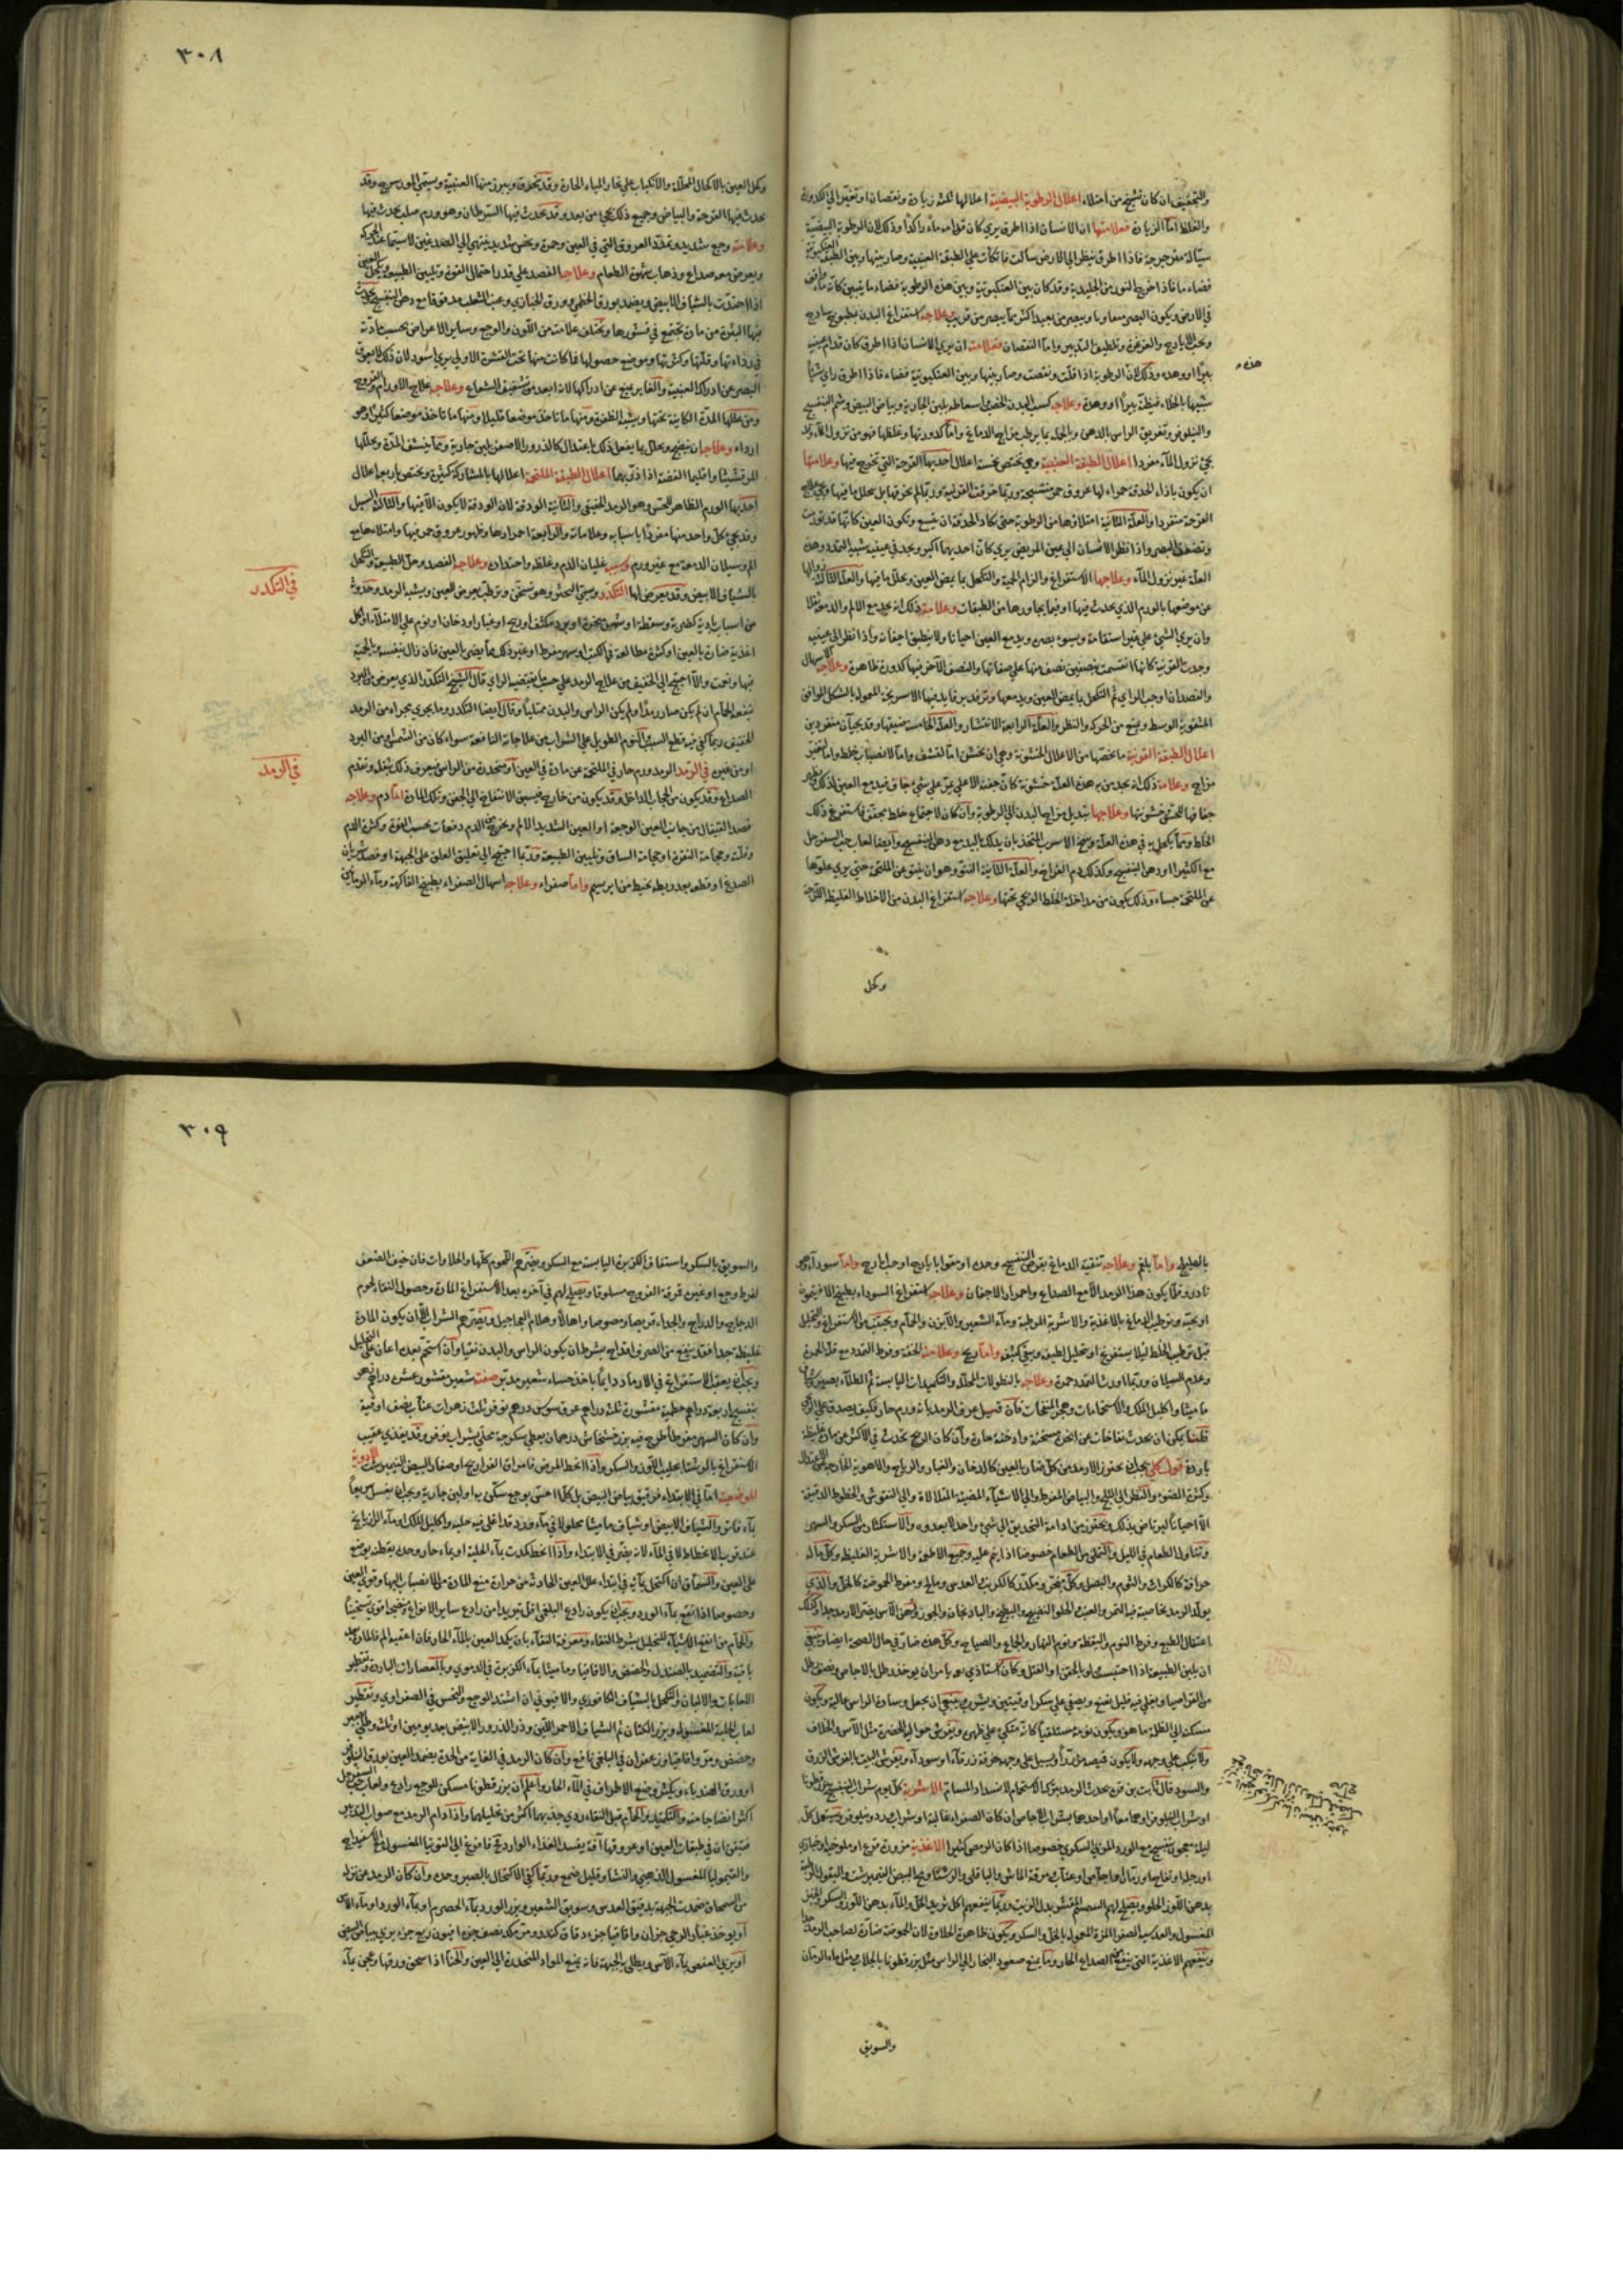 والتجفيف ان كان تشنج من امتلاء اعلال الرطوبة البيضية اعلالها ثلثة زيادة ونقصان او تغير الى الكدورة
والغلظ اما الزيادة فعلامتها ان الانسان اذا اطرق يرى كان قدامه ماء راكدا وذلك لان الرطوبة البيضية
سيالة مترجرجة فاذا اطرق لينظر الى الارض سالت فاتكأت على الطبقة العنبية وصار بينها وبين الطبقة العنكبوتية
فضاء ما فاذا خرج النور من الجليدية وقد كان بين العنكبوتية وبين هذه الرطوبة فضاء ما تبين كانه ماء واقف
في الارض ويكون البصر معاوما ويبصر من بعيد اكثر مما يبصر من قريب وعلاجه استفراغ البدن بمطبوخ ساذج
وبحب الايارج والغرغرة وتلطيف التدبير واما النقصان فعلامته ان يرى الانسان اذا اطرق كان قدام عينيه
بيرا او وهدة وذلك لان الرطوبة اذا قلت ونقصت وصار بينها وبين العنكبوتية فضاء فاذا اطرق راى شيئا
هذه
شبيها بالخلاء فيظنه بيرا او وهدة وعلاجه كسب البدن الخصب واسعاطه بلبن الجارية وبياض البيض وشم البنفسج
والنيلوفر وتغريق الراس بالدهن وبالجملة بما يرطب مزاج الدماغ واما كدورتها وغلظها فهو من نزول الماء وقد
يجئ نزول الماء مفردا اعلال الطبقة العنبية وهي تختص بخمسة اعلال احديها القرحة التي تخرج فيها وعلامتها
ان يكون بازاء الحدقة حمراء لها عروق حمر منتسجة وربما خرقت القرنية وربما لم تخرقها بل يحلل ما فيها ويجئ علاج
القرحة منفردا والعلة الثانية امتلاؤها من الرطوبة حتى تكاد الحدقة ان تتسع وتكون العين كانها قد تورمت
وتضعف البصر واذا نظر الانسان الى عين المريض يرى كان احديهما اكبر ويجد في عينيه شبيه التمدد وهذه
العلة غير نزول الماء وعلاجها الاستفراغ والزام الحمية والتكحل بما يمض العين ويحلل ما فيها والعلة الثالثة زوالها
عن موضعها بالورم الذي يحدث فيها او فيما يجاورها من الطبقات وعلامته ذلك انه يجد مع الالم والدموع ثقلا
وان يرى الشئ على غير استقامة ويسوء بصره ويدمع العين احيانا ولا ينطبق اجفانه واذا نظر الى عينيه
وجدت القرنية كانها انقسمت بنصفين نصف منها على صفائها والنصف الآخر فيها كدورة ظاهرة وعلاجه الاسهال
والفصد ان اوجب الراي ثم التكحل بما يمض العين ويدمعها وترفد برفايد فيها الاسربجة المعمولة بالشكل الموافق
المثقوبة الوسط ويمنع من الحركة والنظر والعلة الرابعة الانتشار والعلة الخامسة ضيقها وقد يجيآن منفردين
اعلال الطبقة القرنية ما يختصها من الاعلال الخشونة وهي ان تخشن اما لقشف واما لانصباب خلط واما لتغير
مزاج وعلامة ذلك انه يجد من به هذه العلة خشونة كان جفنه الاعلى يمر على شئ جاف فيدمع العين لذلك ويظهر
جفافها للحس وخشونتها وعلاجها تبديل مزاج البدن الى الرطوبة وان كان لاجتماع خلط يجفف فاستفرغ ذلك
الخلط ومما يكحل به في هذه العلة وسخ الاسرب المتخذ بان يدلك باليد مع دهن البنفسج وايضا لعاب حب السفرجل
مع الكثيرا ودهن البنفسج وكذلك دم الفراخ والعلة الثانية النتو وهو ان ينتو عن الملتحمة حتى يرى علوها
عن الملتحمة حساء وذلك يكون من مداخلة الخلط الريحي تحتها وعلاجه استفراغ البدن من الاخلاط الغليظة اللزجة
وكحل
٣٠٨
وكحل العين بالاكحال المحللة والانكباب على بخار المياه الحارة وقد تنخرق ويبرز منها العنبية ويسمى المورسرج وقد
يحدث فيها القرحة والبياض وجميع ذلك يجئ من بعد وقد يحدث فيها السرطان وهو ورم صلب يحدث فيها
وعلامته وجع شديد وتمدد العروق التي في العين وحمرة ونخس شديد ينتهي الى الصدغين لاسيما عند الحركة
ويعرض معه صداع وذهاب شهوة الطعام وعلاجها الفصد على قدر احتمال القوة وتليين الطبيعة وتكحل العين
اذا احتدت بالشياف الابيض ويضمد بورق الخطمي وورق الخبازي وعنب الثعلب مدقوقا مع دهن البنفسج وتحدث
فيها البثور من مادة تجتمع في قشورها وتختلف علامته من اللون والوجع وساير الاعراض بحسب مادته
في رداءتها وقلتها وكثرتها وموضع حصولها فما كانت منها تحت القشرة الاولى يرى اسود لان ذلك لا يعوق
البصر عن ادراك العنبية والغاير يمنع عن ادراكها لانه ابعد من تشفيف الشعاع وعلاجه علاج الاورام والقروح
ومن عللها المدة الكاينة تحتها ويشبه الظفرة ومنها ما تاخذ موضعا قليلا ومنها ما تاخذ موضعا كثيرا وهو
اردا وعلاجها ان ينضج ويحلل بما يفعل ذلك باعتدال كالذرور الاصفر بلبن جارية ومما ينشف المدة ويحللها
المرقشيثا واقليميا الفضة اذا ذر بهما اعلال الطبقة الملتحمة اعلالها بالمشاركة كثيرة وتختص باربعة اعلال
احديها الورم الظاهر للحس وهو الرمد الحقيقي والثانية الودقة لان الودقة لا يكون الا فيها والثالث السبل
وقد يجئ كل واحد منها مفردا باسبابه وعلاماته والرابعة احمرارها وظهور عروق حمر فيها وامتلاءها مع
الم وسيلان الدمعة مع غير ورم وسببه غليان الدم وغلظه واحتداده وعلاجه الفصد وحل الطبيعة والتكحل
في التكدر
بالشياف الابيض وقد يعرض لها التكدر ويسمى الخثر وهو تسخن وترطب يعرض للعين ويشبه الرمد وحدوثه
من اسباب بادية كضربة وسقطة او شمس محرقة او برد مكثف او ريح او غبار او دخان او نوم على الامتلاء او اكل
اغذية ضارة بالعين او كثرة مطالعة في الكتب او سهر مفرط او غير ذلك مما يضر بالعين فان زال بنفسه بالحمية
فبها ونعمت والا احتيج الى الخفيف من علاج الرمد على حسب ما يقتضيه الراي قال الشيخ التكدر الذي يعرض من البرد
ينفعه الحمام ان لم يكن صار رمدا ولم يكن الراس والبدن ممتليا وقال ايضا التكدر وما يجري مجراه من الرمد
الخفيف ربما كفى فيه قطع السبب والنوم الطويل على الشراب من علاجاته النافعة سواء كان من الشمس او من البرد
في الرمد
او من غيره في الرمد الرمد ورم حار في الملتحمة عن مادة في العين او منحدرة من الراس ويعرف ذلك بثقله وتقدم
الصداع وقد يكون من الحجاب الداخل وقد يكون من خارج فيسبق الانتفاخ الى الجفن وتلك المادة اما دم وعلاجه
فصد القيفال من جانب العين الوجعة او العين الشديد الالم ويخرج من الدم دفعات بحسب القوة وكثرة الدم
وقلته وحجامة النقرة او حجامة الساق وتليين الطبيعة وربما احتيج الى تعليق العلق على الجبهة او فصد شريان
الصدغ او قطعه بعد ربطه بخيط من ابريسم واما صفراء وعلاجه اسهال الصفراء بطبيخ الفاكهة وماء الرمانين
بالهليلج واما بلغم وعلاجه تنقية الدماغ بقرص البنفسج وحده او مقوا بايارج او حب ايارج واما سوداء وهو
نادر وقلما يكون هذا الرمد الا مع الصداع واحمرار الاجفان وعلاجه استفراغ السوداء بطبيخ الافتيمون
او بحبه وترطيب الدماغ بالاغذية والاشربة المرطبة وماء الشعير والآبزن والحمام ويجتنب من الاستفراغ والتحليل
قبل ترطيب الخلط ليلا يستفرغ او يتحلل لطيفه ويبقى كثيفه واما ريح وعلامته الخفة وفرط التمدد مع قلة الحمرة
وعدم السيلان وربما اورث التمدد حمرة وعلاجه بالنطولات المحللة والتكميدات اليابسة ثم الطلاء بصبر وشياف
ماميثا واكليل الملك والاستحمامات وهجر المنفخات فان قيل عرف الرمد بانه ورم حار فكيف يصدق على الريحي
قلنا يمكن ان يحدث نفاخات عن ابخرة مسخنة وادخنة حارة وان كان الريح تحدث في الاكثر عن مادة غليظة
باردة قول كلي يجب ان يحترز الارمد من كل ضار بالعين كالدخان والغبار والرياح والاهوية الخارجة عن الاعتدال
وكثرة الضوء والنظر الى الثلج والبياض المفرط والى الاشياء المضيئة المتلالاة والى النقوش والخطوط الدقيقة
الا احيانا ليرتاض بذلك ويحترز من ادامة التحديق الى شئ واحد لا يعدوه والاستكثار من السكر والسهر
وتناول الطعام في الليل والتملي من الطعام خصوصا اذا نيم عليه وجميع الاطعمة والاشربة الغليظة وكل ماله
حرافة كالكراث والثوم والبصل وكل مبخر ومكدر كالكرنب والعدس ومالح ومفرط الحموضة كالخل والذي
يولد الرمد بخاصية فيه التمر والعنب الحلو النضيج والبطيخ والباذنجان والجوز ودهن الآس يضر الارمد جدا وكذلك
اعتقال الطبع وفرط النوم واليقظة ونوم النهار والجماع والصياح وكل هذه ضارة في حال الصحة ايضا وينبغي
ان يلين الطبيعة اذا احتبست ولو بالحقن او الفتل وكان استاذي بوه يامر ان يوخذ رطل بالاجاص ونصف رطل
من القراصيا ويغلي فيه قليل نعنع ويصفي على سكر اوقيتين ويشرب وينبغي ان يجعل وسادة الراس عالية ويكون
مسكنه الى الظلمة ما هو ويكون نومه مستلقيا كانه متكئ على ظهره ويفرش حواليه الخضرة مثل الآس والخلاف
ولا ينكب على وجهه ولا يكون قميصه مزررا ويسبل على وجهه خرقة زرقاء او سوداء ويفرش البيت بالفرش الزرق
والسود قال ثابت بن قرة يحدث الرمد بترك الاستحمام لانسداد المسام ثم الاشربة كل يوم شراب البنفسج ببزرقطونا
او شراب النيلوفر او هما معا او احدهما بشراب الاجاص ان كان الصفراء غالبة او شراب ورد ونيلوفر ويستعمل كل
ليلة معجون بنفسج مع الورد المربى السكري خصوصا اذا كان الرمص كثيرا الاغذية مزورة قرع او ملوخيا وخبازي
او رجلة او تفاحا او رمانا او اجاص او عناب مرقة الماش والباقلى والرشتا ومح البيض النيمبرشت والبقول الرطبة
بدهن اللوز الحلو ويصلح لهم السمسم المقشر بدل الزيت وربما ينفعهم اكل ثريد الخل والماء بدهن اللوز والسكر والخبز
المغسول والعدسية الصفرا المزة المعمولة بالخل والسكر ويكون ظاهرة الحلاوة لان الحموضة ضارة لصاحب الرمد جدا
وينفعهم الاغذية التي ينفع من الصداع الحار وما يمنع صعود البخار الى الراس مثل بزرقطونا بالجلاب مثل ماء الرمان
والسويق
٣٠٩
والسويق بالسكر واستفاف الكزبرة اليابسة مع السكر ويضرهم اللحوم كلها والحلاوات فان خيف الضعف
لفرط وجع او غيره فمرقة الفروج مسلوقا ويصلح لهم في آخره بعد الاستفراغ المادة وحصول النقاء لحوم
الدجاج والدراج والجداء قريصا ومصوصا واهالا وهلام العجاجيل ويضرهم الشراب الا ان يكون المادة
غليظة جدا فقد ينفع من الصرف اقداح بشرط ان يكون الراس والبدن نقيا وان استحم بعده اعان على التحليل
ويجب ان يعقب الاستفراغ في الارماد دايما باخذ حساء شعير مدبر صفته شعير مقشور عشر دراهم زهر
بنفسج اربعة دراهم خطمية مقشورة ثلثة دراهم عرق سوس درهم نوفر ثلث زهرات عناب نصف اوقية
وان كان السهر مفرطا طرح فيه بزر خشخاش درهمان يغلى سكرجة بحلى بشراب نوفر وقد يغذى عقيب
الاستفراغ بالرشتا بحليب اللوز والسكر واذا انحط المرض فامراق الفراريج او صفار البيض النيمبرشت الادوية
الموضعية اما في الابتداء فرقيق بياض البيض بل كلما احس بوجع سكن به او لبن جارية ويجب ان يغسل سريعا
بماء فاتر والشياف الابيض او شياف ماميثا محلولا في ماء ورد قد اغلي فيه حلبة واكليل الملك او ماء الرازيانج
عند قرب الانحطاط لا في الماء لانه يضر في الابتداء واذا انحط كمدت بماء الحلبة او بماء حار وحده بقطنة يوضع
على العين والسماق ان اكتحل بمائه في ابتداء علل العين الحادثة من حرارة منع المادة من الانصباب اليها وقوى العين
وخصوصا اذا نقع بماء الورد ويجب ان يكون رادع البلغمي اقل تبريدا من رادع ساير الانواع ومنضجه اقوى تسخينا
والحمام من انفع الاشياء للتحليل بشرط النقاء ومعرفة النقاء بان يكمد العين بالماء الحار فان اعقبه الم فالمادة بعد
باقية والتضميد بالصندل والحضض والاقاقيا وماميثا بماء الكزبرة في الدموي وبالعصارات الباردة وتقطير
اللعابات والالبان والتكحل بالشياف الكافوري والافيوني ان اشتد الوجع والنخس في الصفراوي وتقطير
لعاب الحلبة المغسولة وبزر الكتان ثم الشياف الاحمر اللين وذر الذرور الابيض بعد يومين او ثلثة وطلي بصبر
وحضض ومر واقاقيا وزعفران في البلغمي نافع وان كان الرمد في الغاية من الحدة يضمد العين بورق النيلوفر
او ورق الهندباء وبكبش وضع الاطراف في الماء الحار واعلم ان بزرقطونا مسكن للوجع رادع ولعاب حب السفرجل
اكثر انضاجا منه والتكميد والحمام قبل النقاء ردي جذبهما اكثر من تحليلهما واذا دام الرمد مع صواب التدبير
فتيقن ان في طبقات العين او عروقها آفة يفسد الغذاء الوارد فافزع الى التوتيا المغسول والاسفيداج
والقيموليا المغسول الذهبي والنشا وقليل صمغ وربما كفى الاكتحال بالصبر وحده وان كان الرمد عن نزلة
من السمحاق ضمدت الجبهة بدقيق العدس وسويق الشعير وبزر الورد بماء الحصرم او بماء الورد او ماء الآس
او يوخذ غبار الرحى جزءان واقاقيا جزء دقاق كندر ومر من كل نصف جزء افيون ربع جزء يربى ببياض البيض
او يربى العفص بماء الآس ويطلى به الجبهة فانه يمنع المواد المنحدرة الى العين والحنا اذا اسحق ورقها وعجن بماء